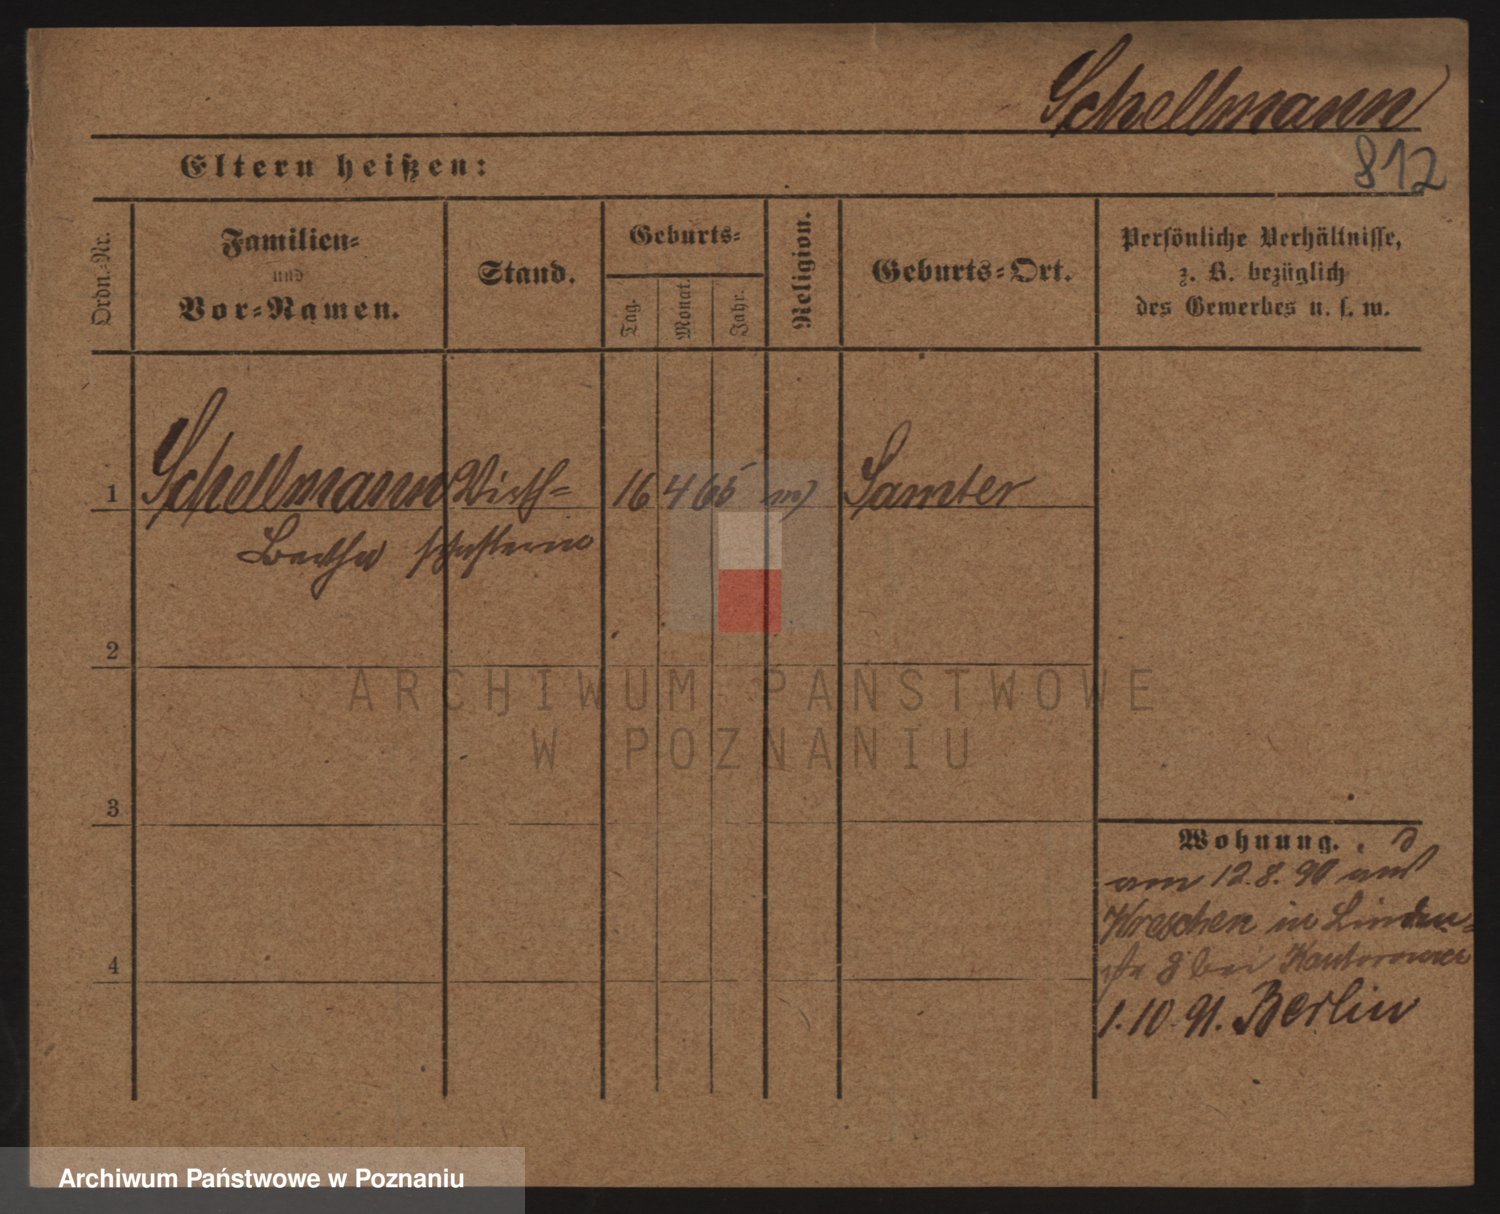 Schellmann
812
Eltern heißen:
Ordn.-Nr.
Familien-
und
Vor-Namen.
Stand.
Geburts-
Tag.
Monat.
Jahr.
Religion.
Geburts-Ort.
Persönliche Verhältnisse,
z. B. bezüglich
des Gewerbes u. s. w.
1 Schellmann Wirth- 16 4 65 m) Samter
Bertha schafterin
2
3
4
Wohnung.
am 12.8.90 aus
Kreschen in Linden-
str 8 bei Kantorowicz
1.10.91. Berlin
ARCHIWUM PAŃSTWOWE
W POZNANIU
Archiwum Państwowe w Poznaniu